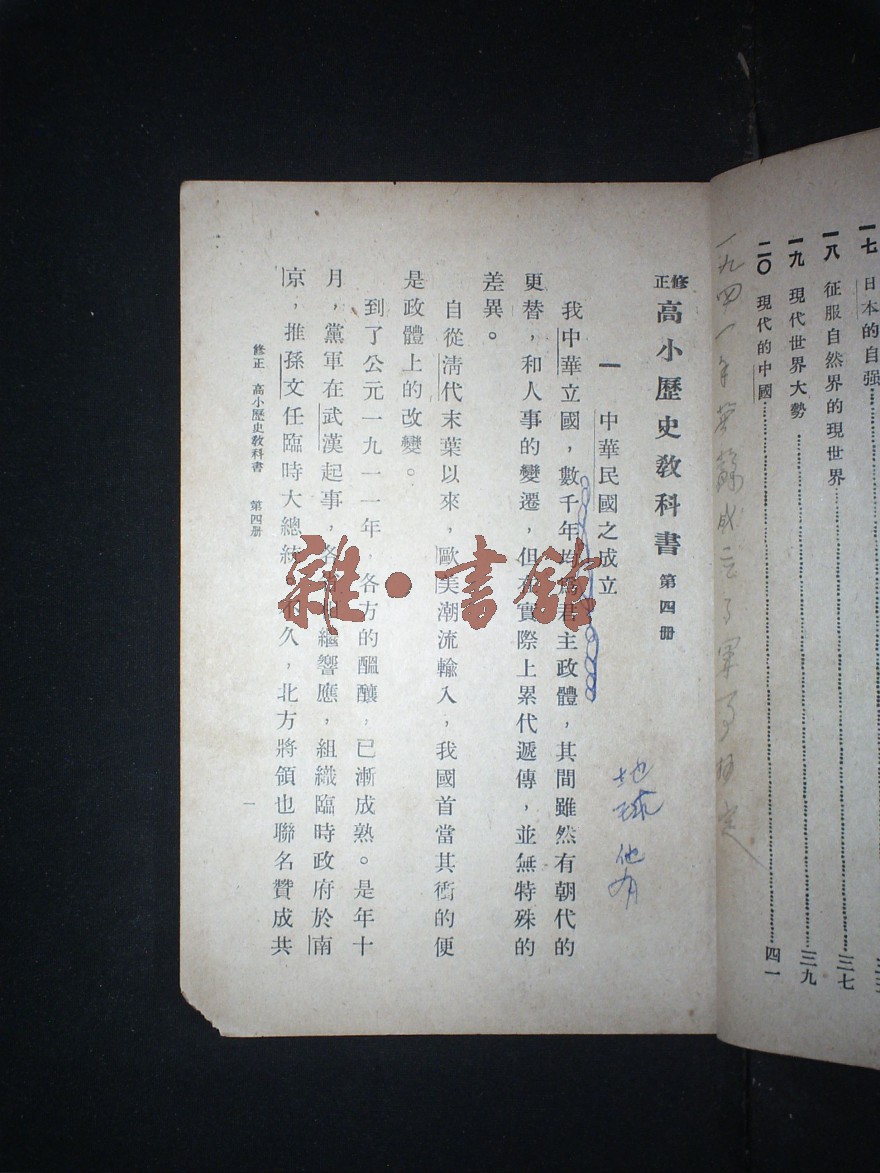 一七 日本的自强
一八 征服自然界的現世界 三七
一九 現代世界大勢 三九
二〇 現代的中國 四一
一九四一年英蘇成立了軍事協定
修正 高小歷史教科書 第四册
地球 他有
一 中華民國之成立
我中華立國，數千年均爲君主政體，其間雖然有朝代的
更替，和人事的變遷，但在實際上累代遞傳，並無特殊的
差異。
自從清代末葉以來，歐美潮流輸入，我國首當其衝的便
是政體上的改變。
到了公元一九一一年，各方的醞釀，已漸成熟。是年十
月，黨軍在武漢起事，各相繼響應，組織臨時政府於南
京，推孫文任臨時大總統，不久，北方將領也聯名贊成共
修正 高小歷史教科書 第四册
一
雜·書館